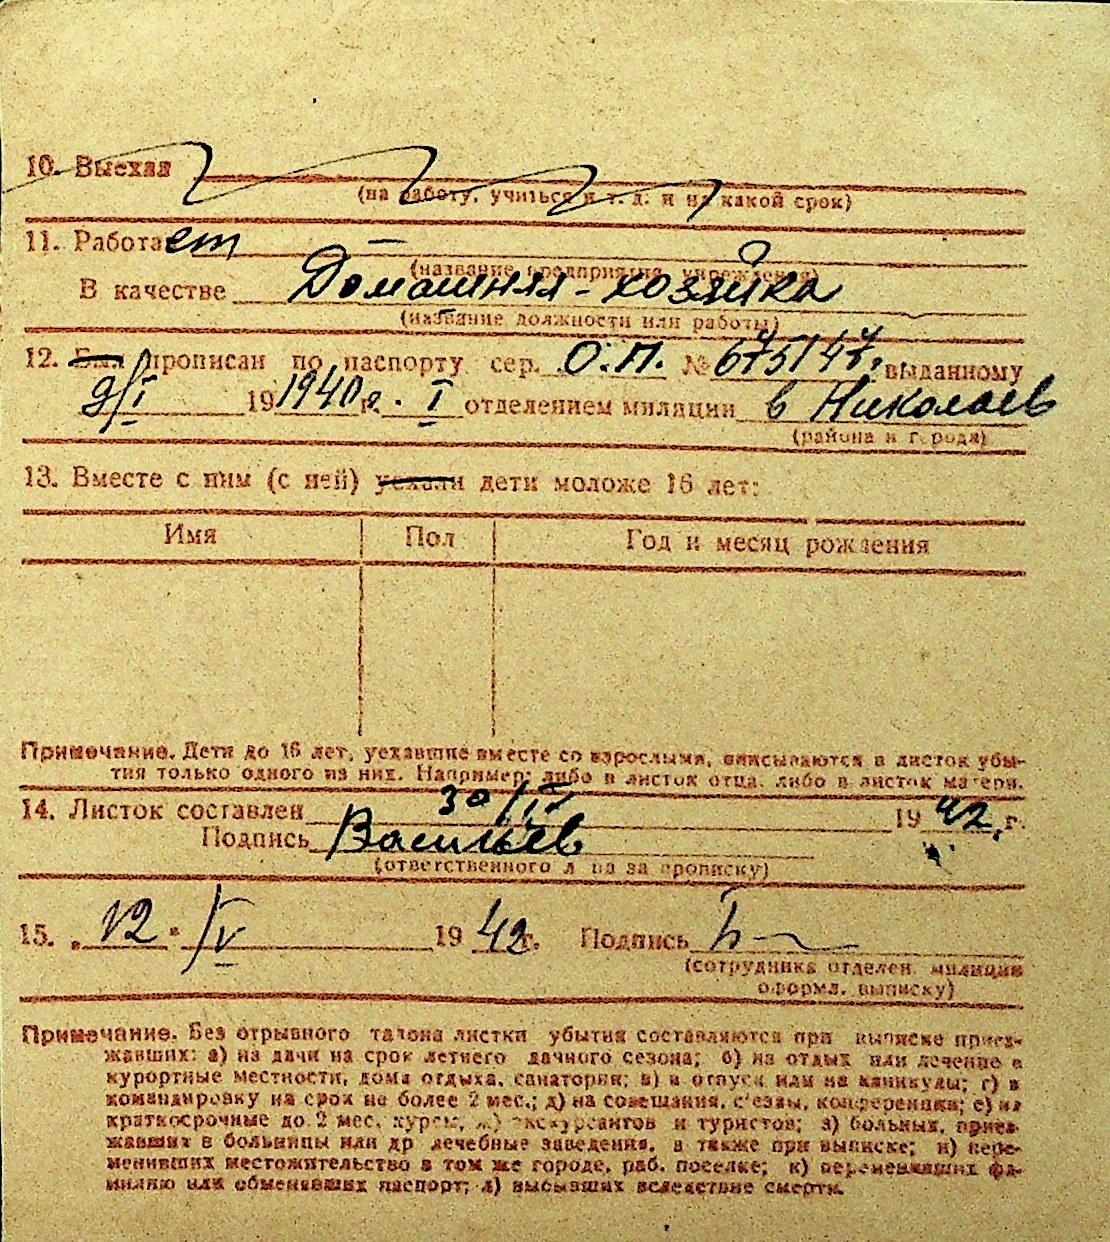 10. Выехал
(на работу, учиться и т. д. и на какой срок)
11. Работает —
(название предприятия, учреждения)
В качестве Домашняя-хозяйка
(название должности или работы)
12. Был прописан по паспорту сер. О.П. № 675147, выданному
9/I 191940 г. I отделением милиции в Николаев
(района и города)
13. Вместе с ним (с ней) уехали дети моложе 16 лет:
Имя Пол Год и месяц рождения
Примечание. Дети до 16 лет, уехавшие вместе со взрослыми, вписываются в листок убы-
тия только одного из них. Например: либо в листок отца, либо в листок матери.
14. Листок составлен 30/IV 1942 г.
Подпись Васильев
(ответственного лица за прописку)
15. „12" V 1942 г. Подпись
(сотрудника отделен. милиции
оформл. выписку)
Примечание. Без отрывного талона листки убытия составляются при выписке приез-
жавших: а) на дачи на срок летнего дачного сезона; б) на отдых или лечение в
курортные местности, дома отдыха, санатории; в) в отпуск или на каникулы; г) в
командировку на срок не более 2 мес.; д) на совещания, съезды, конференции; е) на
краткосрочные до 2 мес. курсы; ж) экскурсантов и туристов; з) больных, приез-
жавших в больницы или др лечебные заведения, а также при выписке; и) пере-
менивших местожительство в том же городе, раб. поселке; к) переменивших фа-
милию или обменявших паспорт; л) выбывших вследствие смерти.